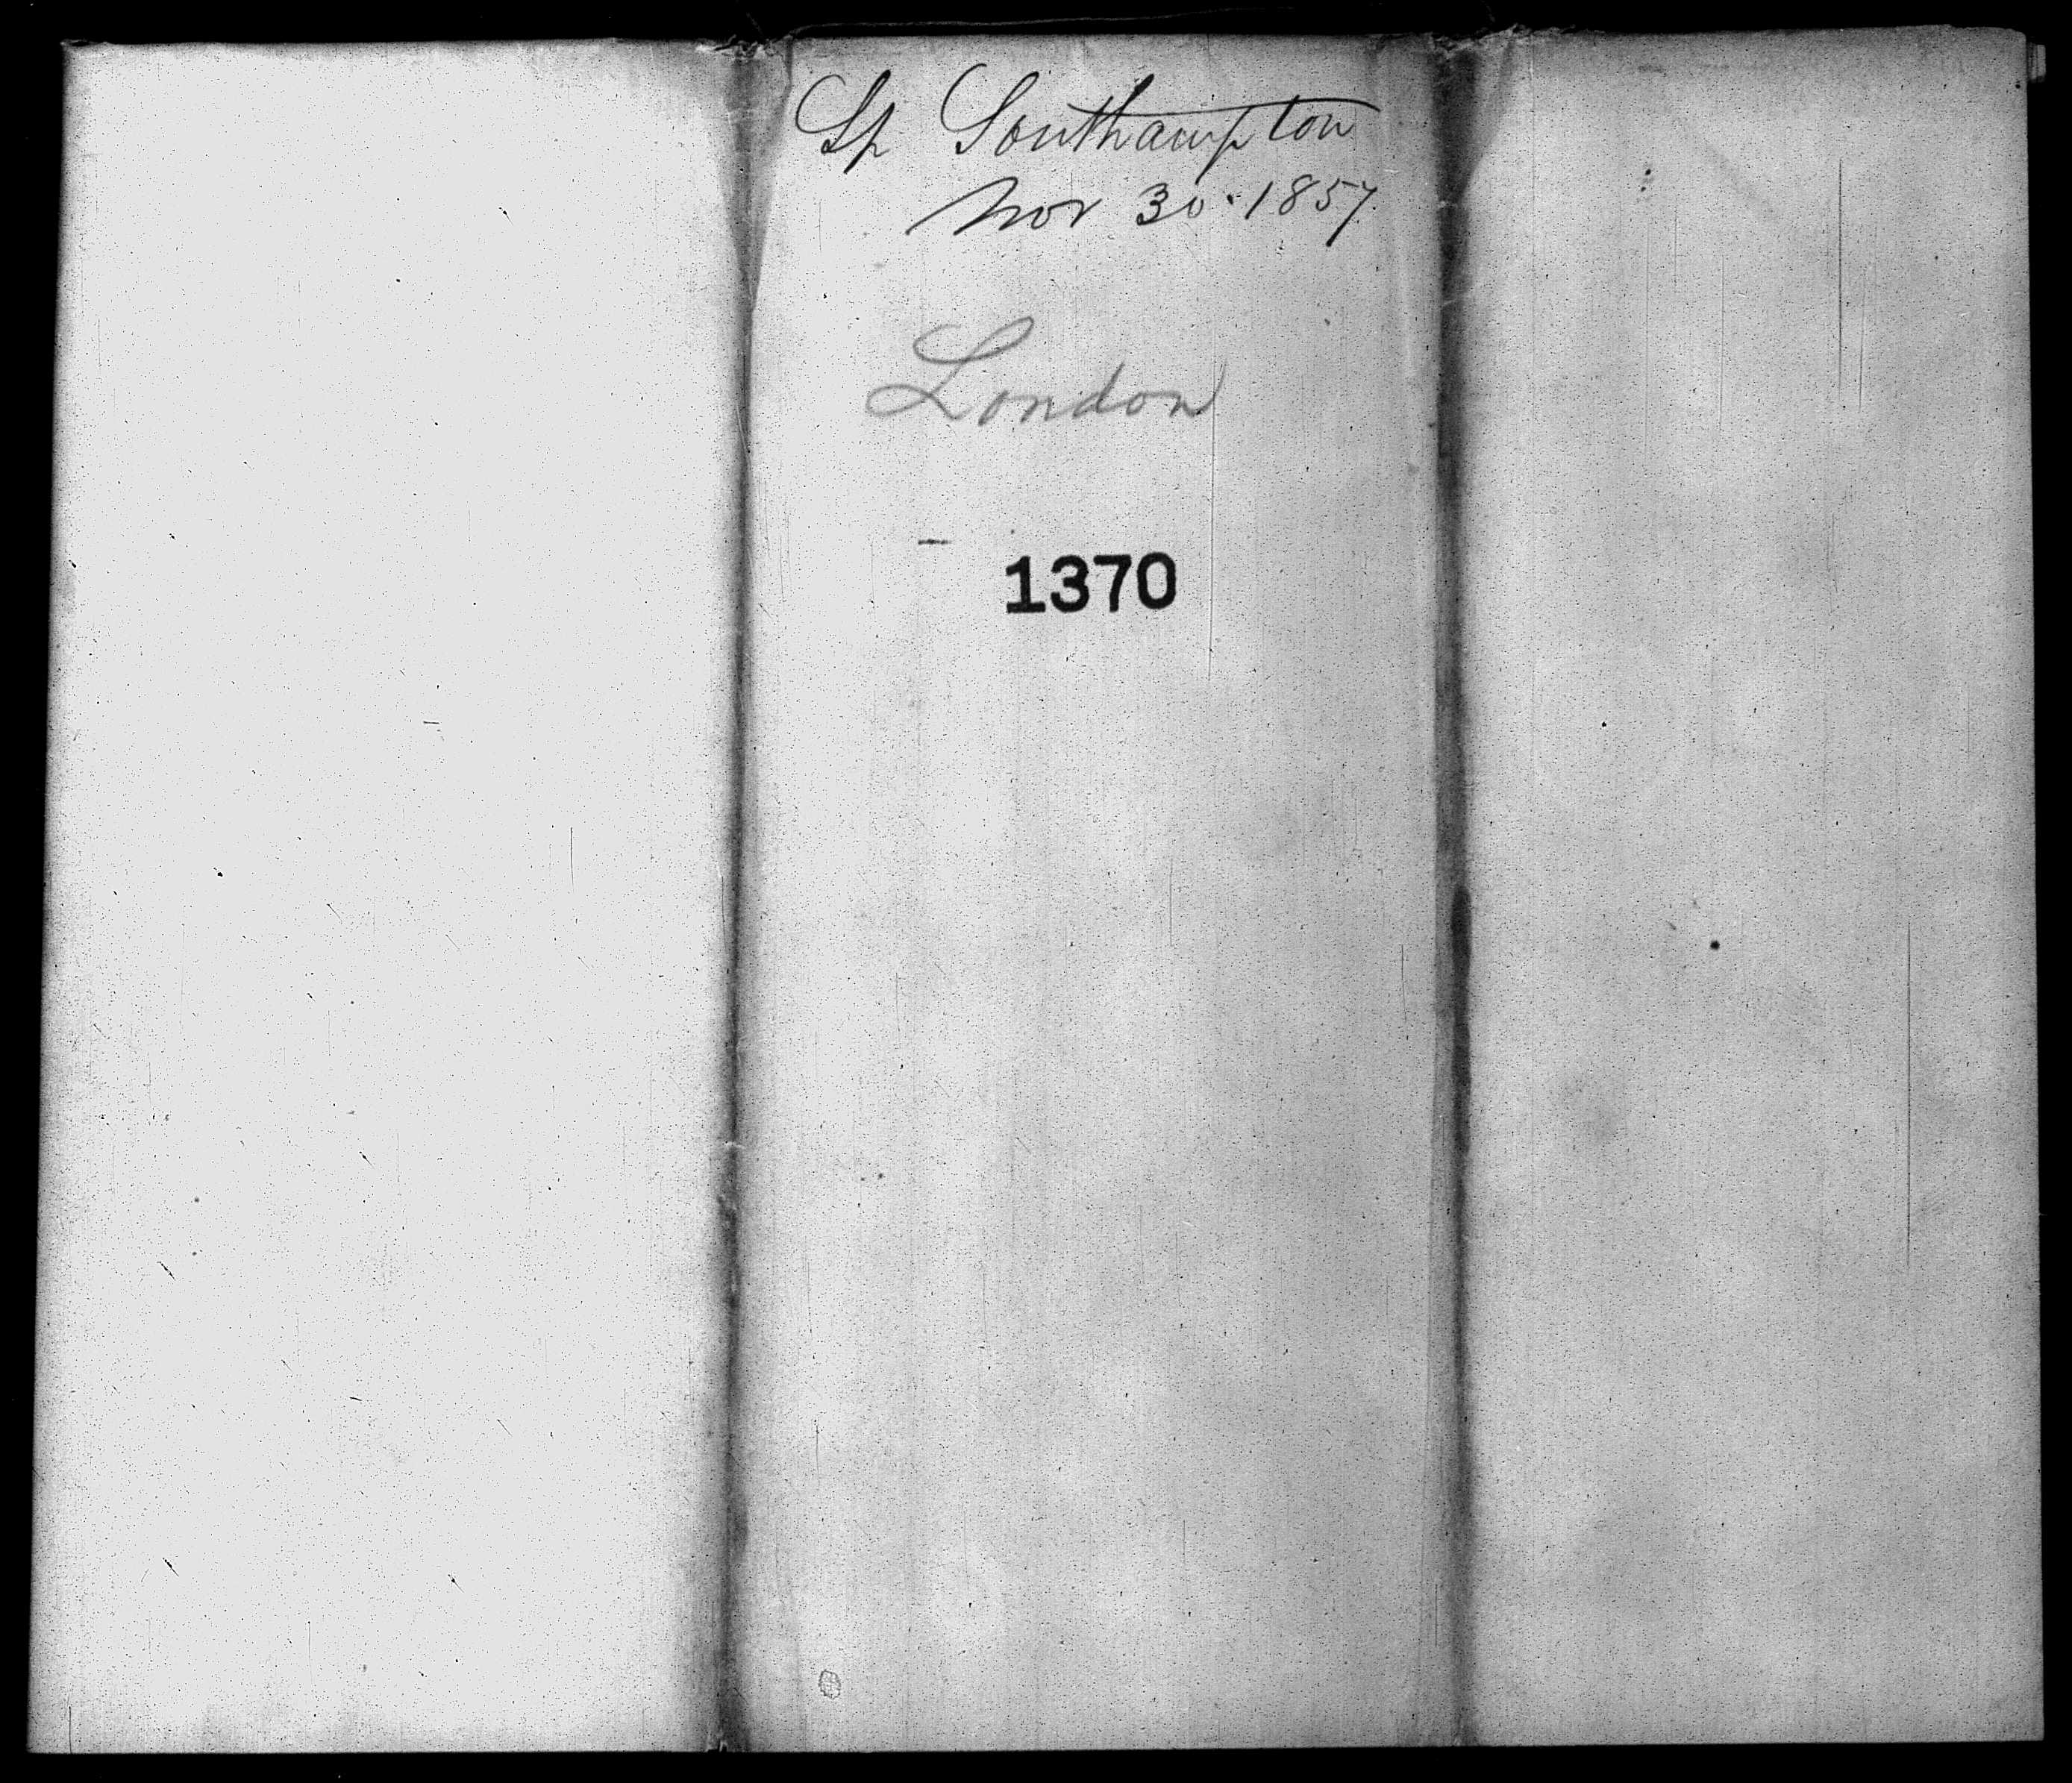 Sp Southampton
Nov 30. 1857
London
1370